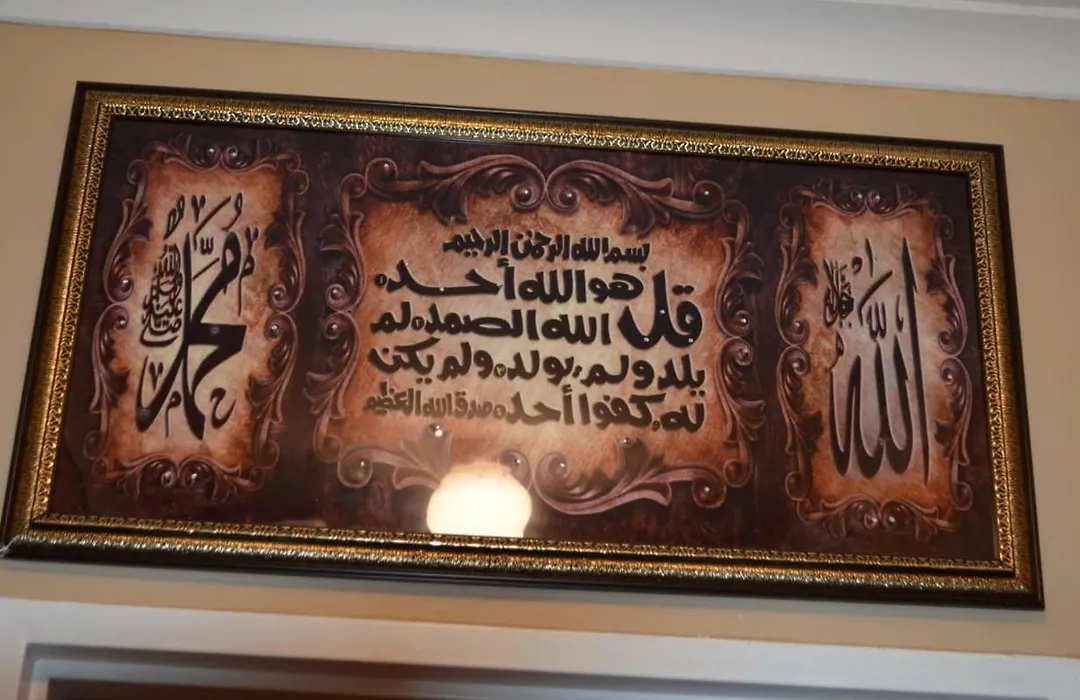 الله
جل جلاله
بسم الله الرحمن الرحيم
قل هو الله أحد
الله الصمد لم
يلد ولم يولد ولم يكن
له كفوا أحد صدق الله العظيم
محمد
صلى الله عليه وسلم